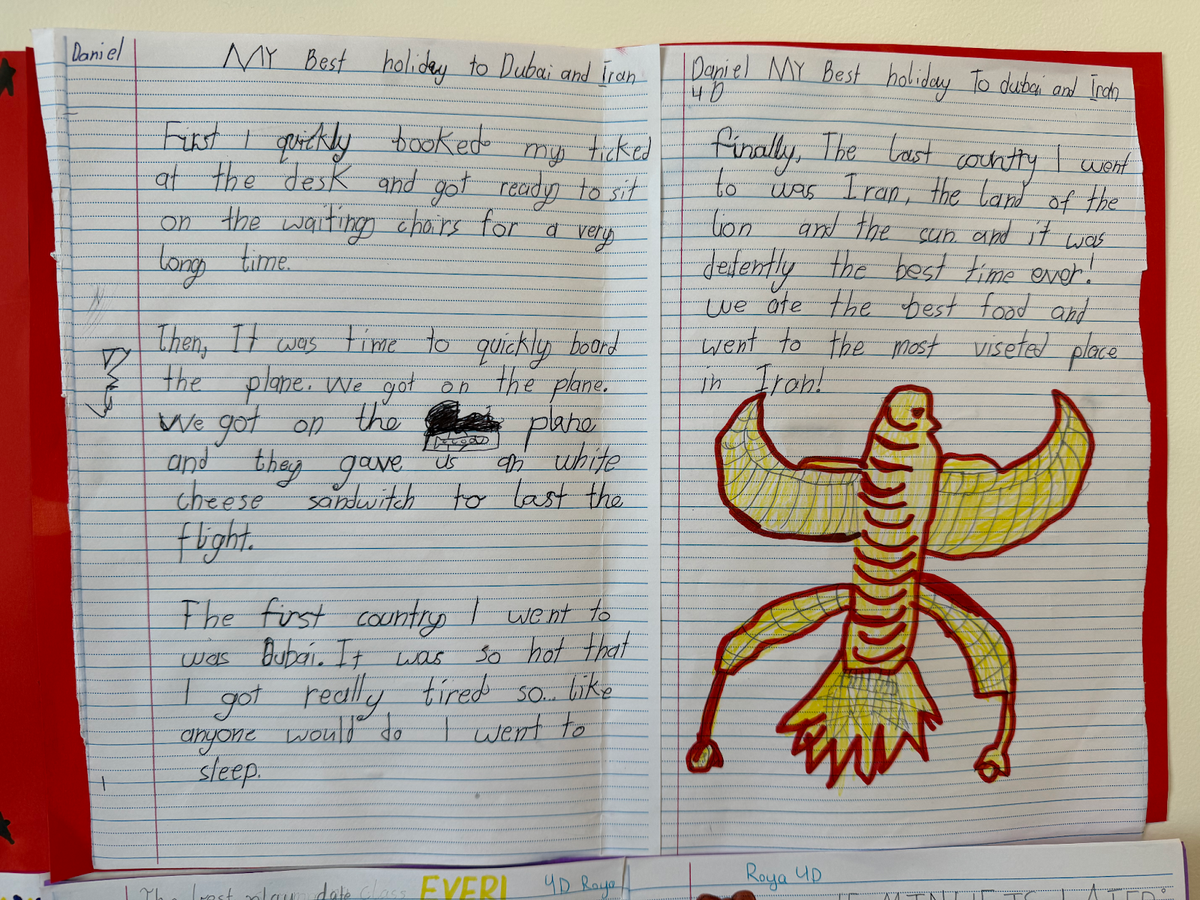 Daniel
MY Best holiday to Dubai and Iran
First I quickly booked my ticked
at the desk and got ready to sit
on the waiting chairs for a very
long time.
Then, It was time to quickly board
the plane. We got on the plane.
We got on the plane
and they gave us an white
cheese sandwitch to last the
flight.
The first country I went to
was Dubai. It was so hot that
I got really tired so... like
anyone would do I went to
sleep.
Daniel MY Best holiday To dubai and Iran
4D
finally, The last country I went
to was Iran, the land of the
lion and the sun. and it was
defently the best time ever!
we ate the best food and
went to the most viseted place
in Iran!
The best play date class EVER! 4D Roya
Roya 4D